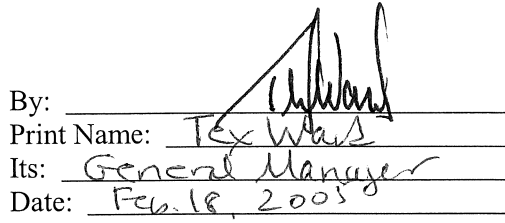 By:
Print Name: Tex Ward
Its: General Manager
Date: Feb. 18, 2005